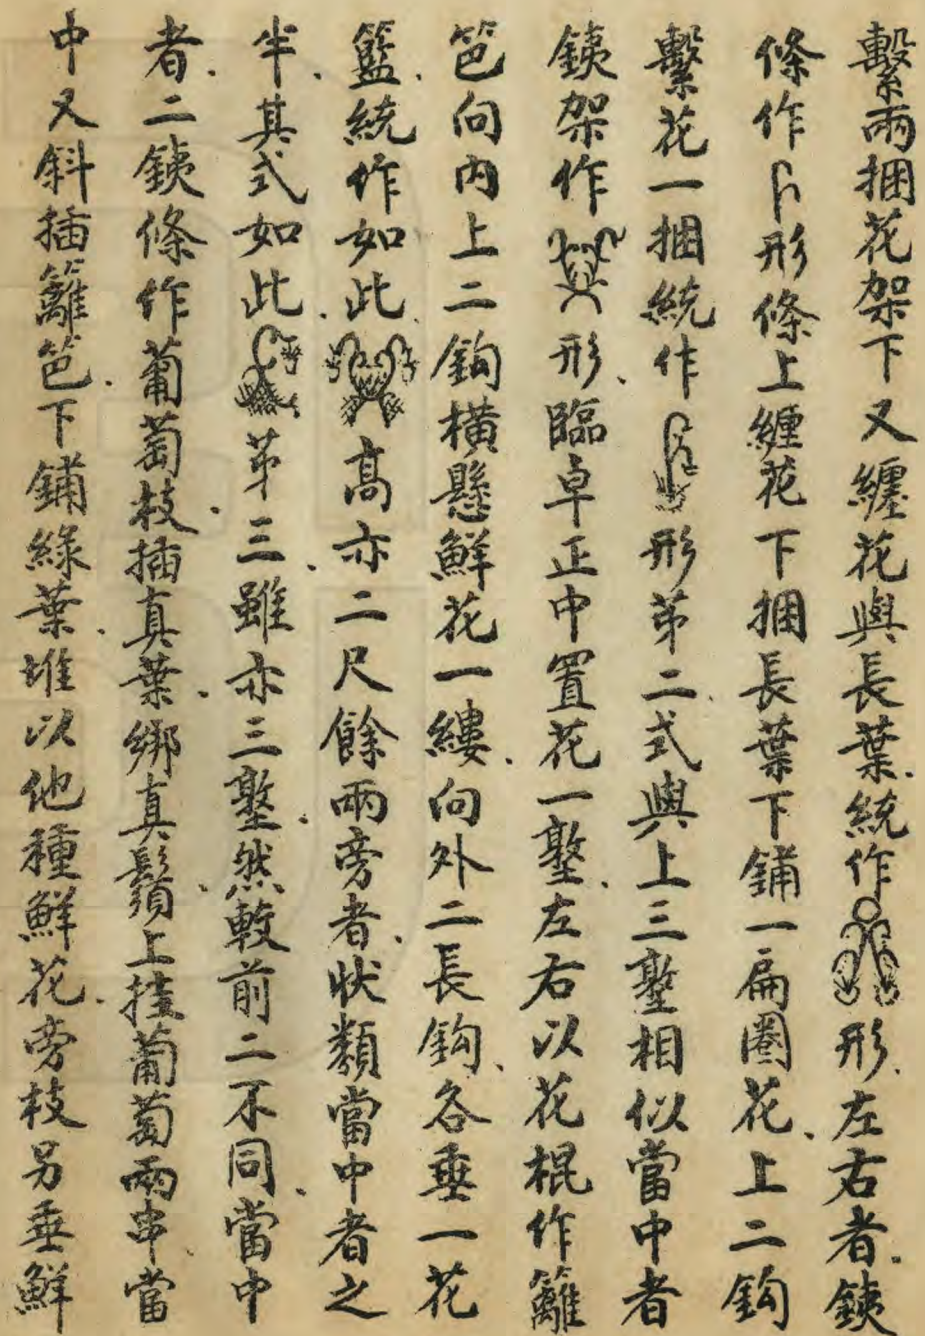 繫兩捆花架下又纏花與長葉統作形左右者銕
條作形條上纏花下捆長葉下鋪一扁圈花上二鈎
繫花一捆統作形苐二式與上三墪相似當中者
銕架作形臨卓正中置花一墪左右以花棍作籬
笆向內上二鈎橫懸鮮花一縷向外二長鈎各垂一花
籃統作如此高亦二尺餘兩旁者狀類當中者之
半其式如此苐三雖亦三墪然較前二不同當中
者二銕條作葡萄枝插真葉綁真鬚上挂葡萄兩串當
中又斜插籬笆下鋪綠葉堆以他種鮮花旁枝另垂鮮